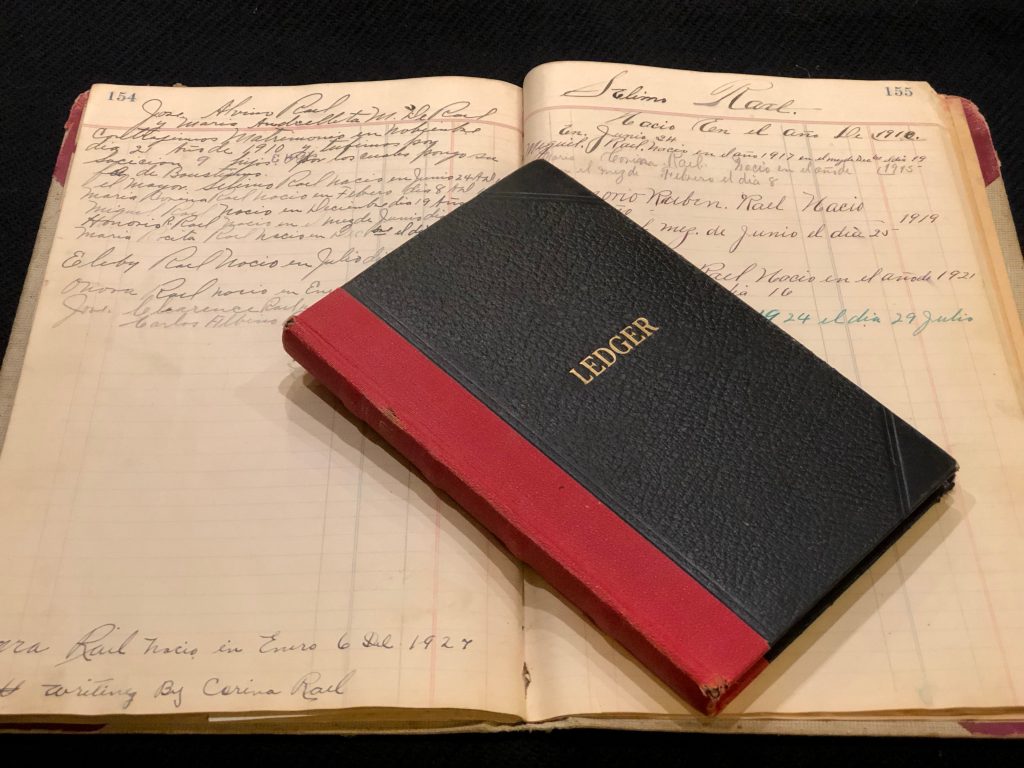 154
Jose Alvino Rael
y Maria Andrellita M. De Rael
Contragimos Matrimonio en Nobienbre
dia 21 Año de 1910 y tubimos por
sucecion 9 hijos por los cuales pongo su
fe de Boustismo.
el mayor. Selimo Rael nacio en Junio 24
Maria Rael nacio en Febero dia 8
Rael nacio en Deciembre dia 19 Año
Honorio R. Rael nacio el mez de Junio di
Maria Rosita Rael nacio en
Eleby Rael Nacio en Julio d
Onora Rael nacio en En
Jose. Clarence Rael
Carlos Albino
ra Rael nacio en Enero 6 Del 1927
writing By Corina Rael
155
Selimo Rael.
Nacio En el año De 1910.
En. Junio 24
Miguel. J. Rael. Nacio en el año 1917 en el mez de dia 19
Maria Corina Rael. Nacio en el año de 1915
el mez de Febero el dia 8
orio Ruiben. Rael Nacio
1919
l mez. de Junio el dia 25
Rael Nacio en el año de 1921
dia 16
1924 el dia 29 Julio
LEDGER